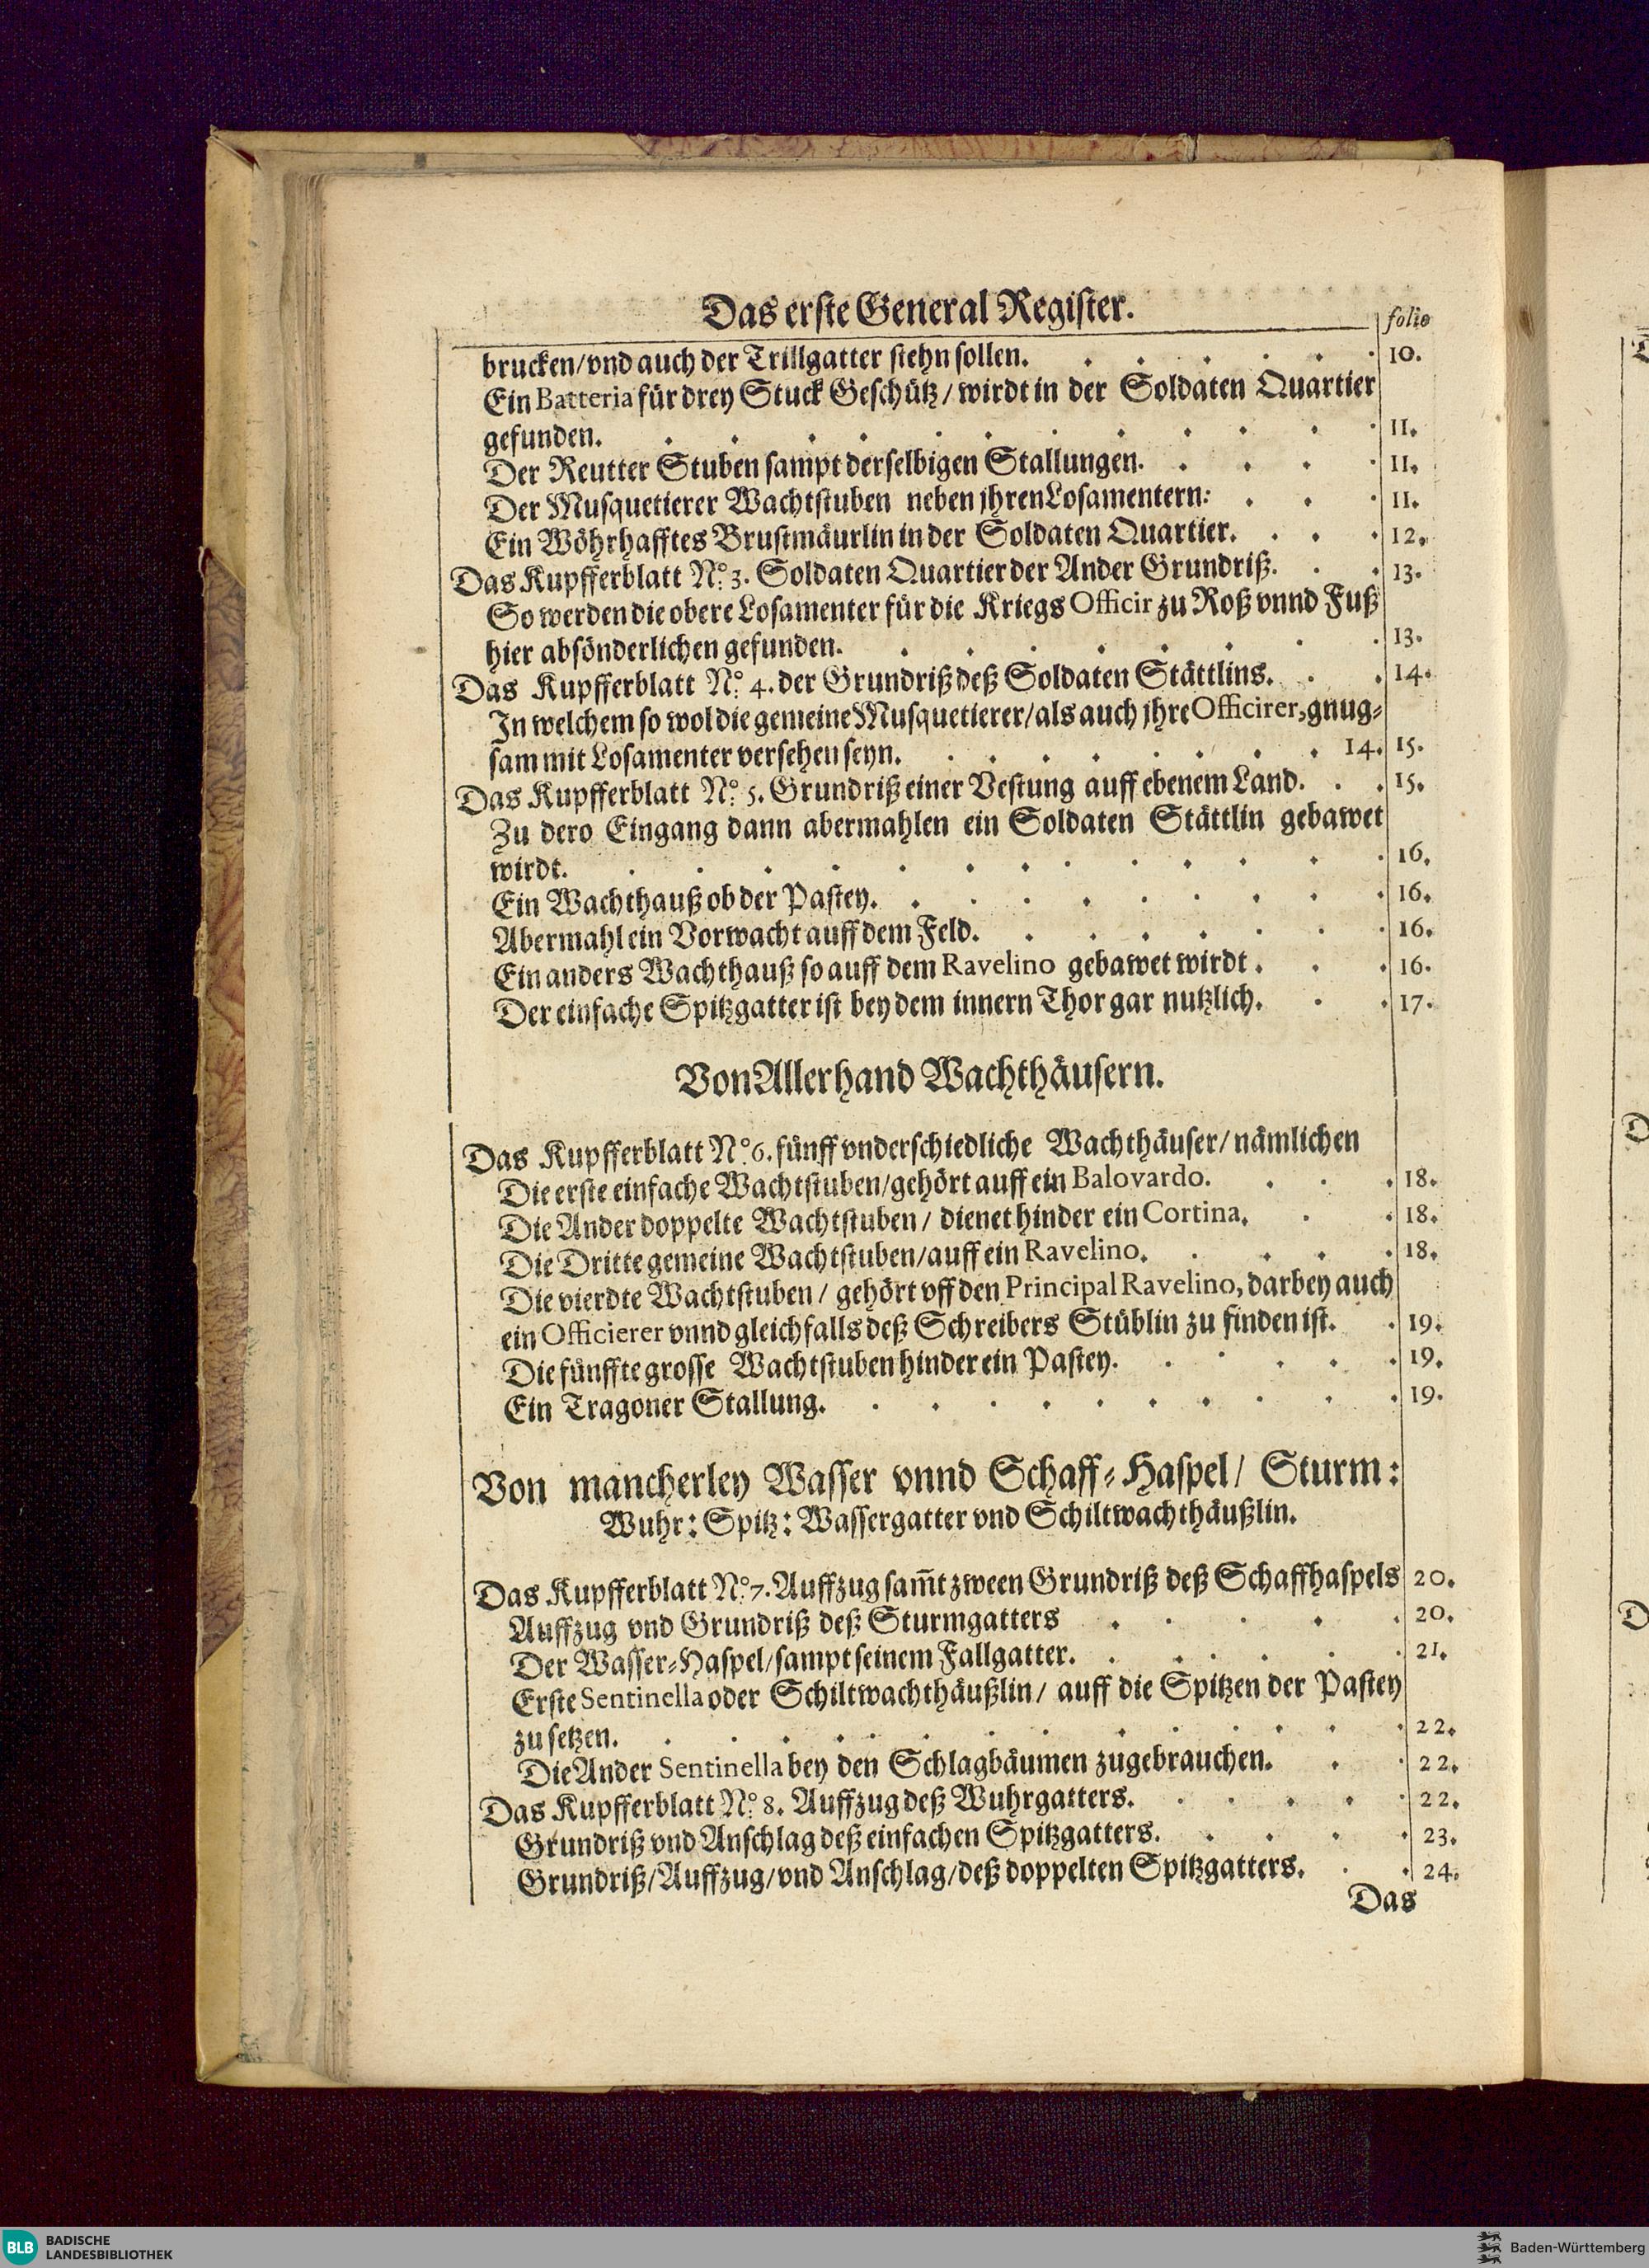 Das erste General Register.
folio
brucken/vnd auch der Trillgatter stehn sollen. . . . . . . 10.
Ein Batteria für drey Stuck Geschütz/ wirdt in der Soldaten Quartier
gefunden. . . . . . . . . . . . . 11.
Der Reutter Stuben sampt derselbigen Stallungen. . . . . 11.
Der Musquetierer Wachtstuben neben jhren Losamentern: . . . 11.
Ein Wöhrhafftes Brustmäurlin in der Soldaten Quartier. . . . 12.
Das Kupfferblatt No. 3. Soldaten Quartier der Ander Grundriß. . . 13.
So werden die obere Losamenter für die Kriegs Officir zu Roß vnnd Fuß
hier absönderlichen gefunden. . . . . . . . . 13.
Das Kupfferblatt No. 4. der Grundriß deß Soldaten Stättlins. . . 14.
In welchem so wol die gemeine Musquetierer/als auch jhre Officirer, gnug-
sam mit Losamenter versehen seyn. . . . . . . . 14. 15.
Das Kupfferblatt No. 5. Grundriß einer Vestung auff ebenem Land. . . 15.
Zu dero Eingang dann abermahlen ein Soldaten Stättlin gebawet
wirdt. . . . . . . . . . . . . 16.
Ein Wachthauß ob der Pastey. . . . . . . . . . 16.
Abermahl ein Vorwacht auff dem Feld. . . . . . . . 16.
Ein anders Wachthauß so auff dem Ravelino gebawet wirdt. . . 16.
Der einfache Spitzgatter ist bey dem innern Thor gar nutzlich. . . 17.
Von Allerhand Wachthäusern.
Das Kupfferblatt No. 6. fünff vnderschiedliche Wachthäuser/ nämlichen
Die erste einfache Wachtstuben/gehört auff ein Balovardo. . . . 18.
Die Ander doppelte Wachtstuben/ dienet hinder ein Cortina. . . 18.
Die Dritte gemeine Wachtstuben/auff ein Ravelino. . . . . 18.
Die vierdte Wachtstuben/ gehört vff den Principal Ravelino, darbey auch
ein Officierer vnnd gleichfalls deß Schreibers Stüblin zu finden ist. . 19.
Die fünffte grosse Wachtstuben hinder ein Pastey. . . . . . 19.
Ein Tragoner Stallung. . . . . . . . . . . 19.
Von mancherley Wasser vnnd Schaff-Haspel/ Sturm:
Wuhr: Spitz: Wassergatter vnd Schiltwachthäußlin.
Das Kupfferblatt No. 7. Auffzug sam̃t zween Grundriß deß Schaffhaspels 20.
Auffzug vnd Grundriß deß Sturmgatters . . . . . 20.
Der Wasser-Haspel/sampt seinem Fallgatter. . . . . . 21.
Erste Sentinella oder Schiltwachthäußlin/ auff die Spitzen der Pastey
zu setzen. . . . . . . . . . . . . 22.
Die Ander Sentinella bey den Schlagbäumen zugebrauchen. . . 22.
Das Kupfferblatt No. 8. Auffzug deß Wuhrgatters. . . . . . 22.
Grundriß vnd Anschlag deß einfachen Spitzgatters. . . . . 23.
Grundriß/Auffzug/vnd Anschlag/deß doppelten Spitzgatters. . . 24.
Das
BLB BADISCHE
LANDESBIBLIOTHEK
Baden-Württemberg